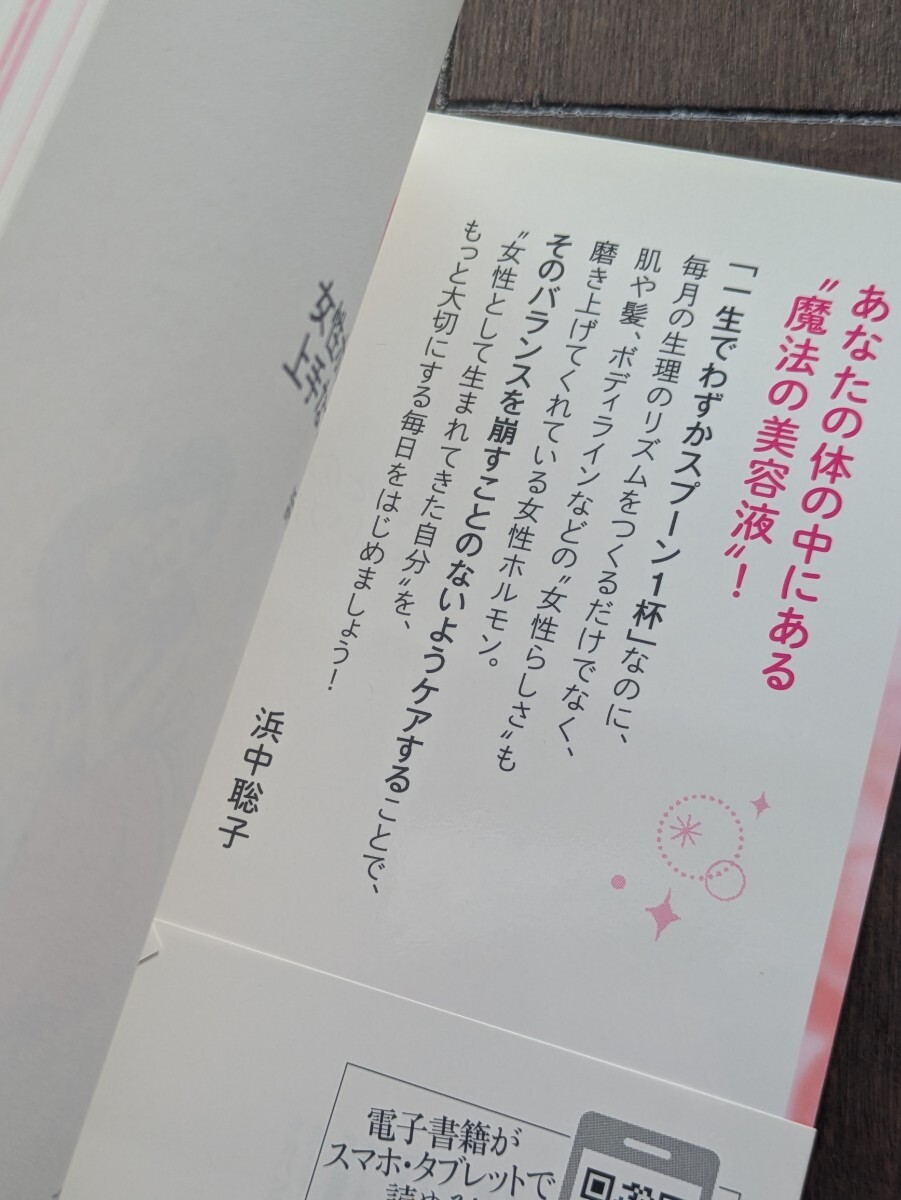 あなたの体の中にある
〝魔法の美容液〟!
「一生でわずかスプーン1杯」なのに、
毎月の生理のリズムをつくるだけでなく、
肌や髪、ボディラインなどの〝女性らしさ〟も
磨き上げてくれている女性ホルモン。
そのバランスを崩すことのないようケアすることで、
〝女性として生まれてきた自分〟を、
もっと大切にする毎日をはじめましょう!
浜中聡子
電子書籍が
スマホ・タブレットで